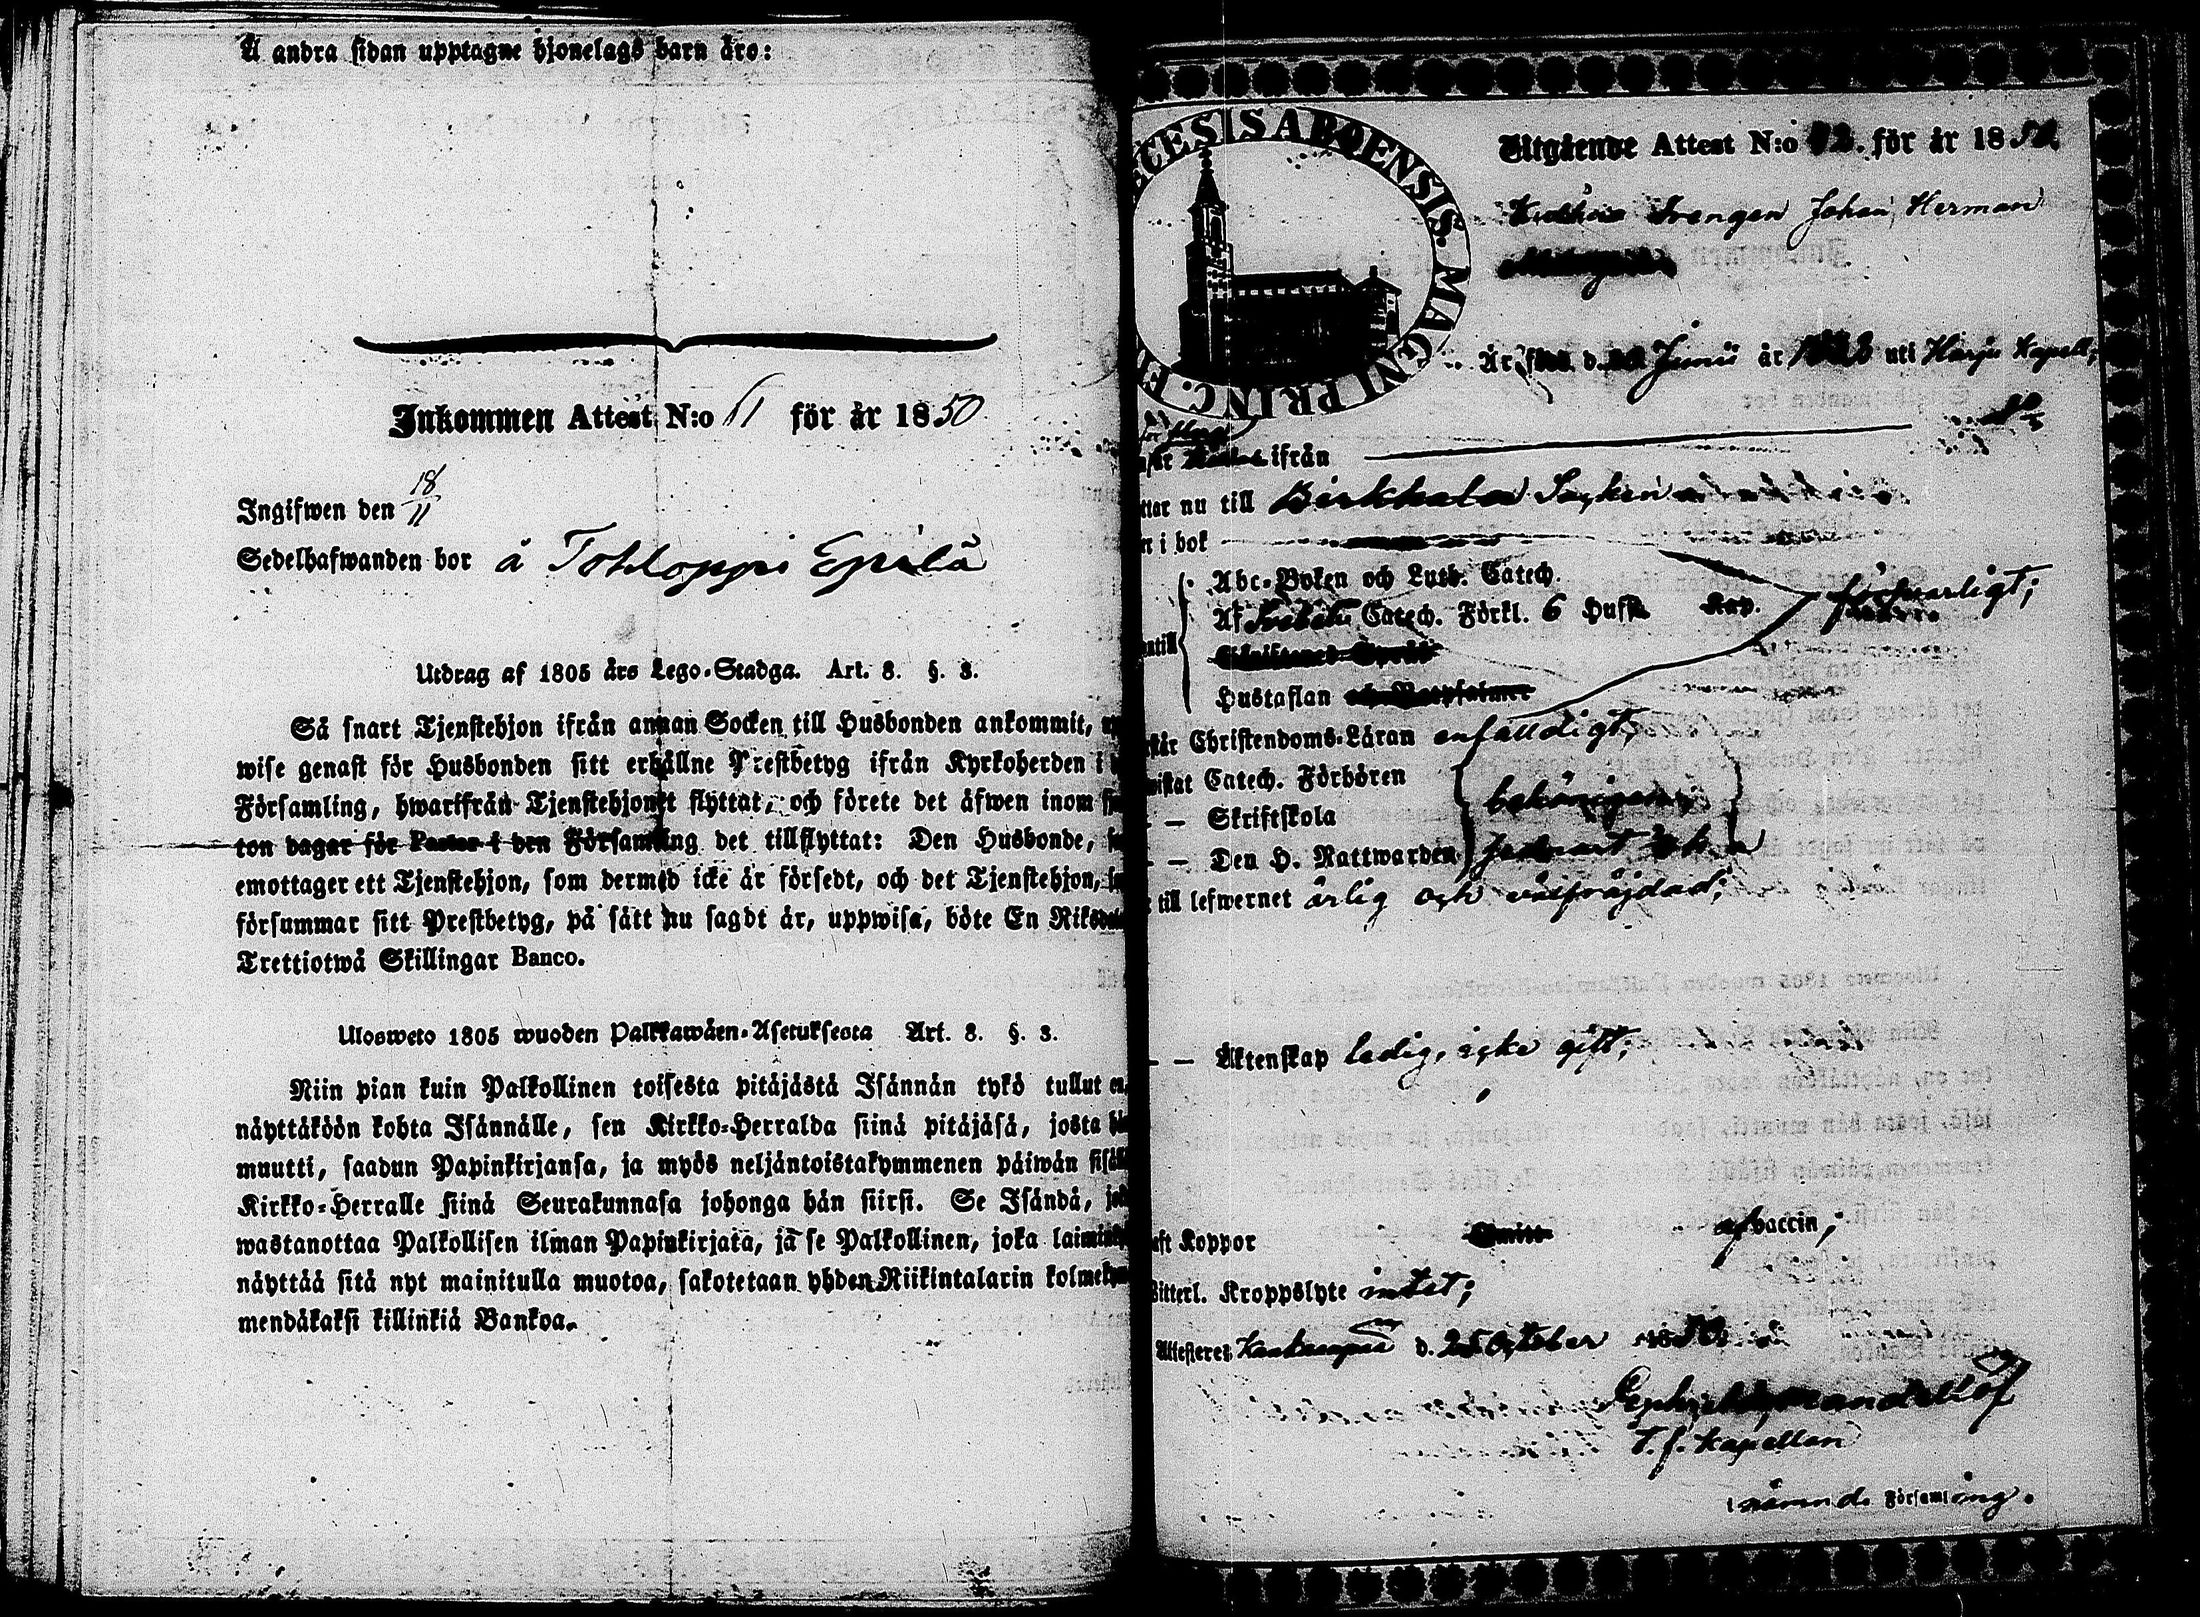 Å andra sidan upptagne hjonelags barn äro:
Inkommen Attest N:o 11 för år 1850.
Ingifwen den 18/11
Sedelhafwanden bor å Tohloppi Epilä
Utdrag af 1805 års Lego-Stadga. Art. 8. §. 3.
Så snart Tjenstehjon ifrån annan Socken till Husbonden ankommit, upp
wise genast för Husbonden sitt erhållne Prestbetyg ifrån Kyrkoherden i
Församling, hwarifrån Tjenstehjonet flyttat, och förete det äfwen inom
ton dagar för Pastor i den Församling det tillflyttat: Den Husbonde,
emottager ett Tjenstehjon, som dermed icke är försedt, och det Tjenstehjon,
försummar sitt Prestbetyg, på sätt nu sagdt är, uppwisa, böte En Riksdal
Trettiotwå Skillingar Banco.
Ulosweto 1805 wuoden Palkkawäen-Asetuksesta Art. 8. §. 3.
Niin pian kuin Palkollinen toisesta pitäjästä Isännän tykö tullut on,
näyttäköön kohta Isännälle, sen Kirkko-Herralda siinä pitäjäsä, josta hän
muutti, saadun Papinkirjansa, ja myös neljäntoistakymmenen päiwän sisällä
Kirkko-Herralle siinä Seurakunnasa johonga hän siirsi. Se Isändä, jok
wastanottaa Palkollisen ilman Papinkirjata, ja se Palkollinen, joka laimin
näyttää sitä nyt mainitulla muotoa, sakotetaan yhden Riikintalarin kolmekym
mendäkaksi killinkiä Bankoa.
ECESIS ABOENSIS. MAGNI PRINC. F
Utgående Attest N:o för år 1850.
Drengen Johan Herman
Är född d. Junii år uti Harju Kapell;
ifrån
ttar nu till Birkkala Socken
r i bok
Abc-Boken och Luth. Catech.
Af Svebelii Catech. Förkl. 6 Huft. Kap. försvarligt;
antill
Hustaflan
står Christendoms-Läran enfaldigt;
wistat Catech. Förhören
— Skriftskola behörigen;
— Den H. Nattwarden
till lefwernet ärlig och välfräjdad;
— Äktenskap ledig, icke gift;
aft Koppor af vaccin;
Witterl. Kroppslyte intet;
Attesteres d. 25 October 1850.
T. f. Kapellan
i nämnde Församling.